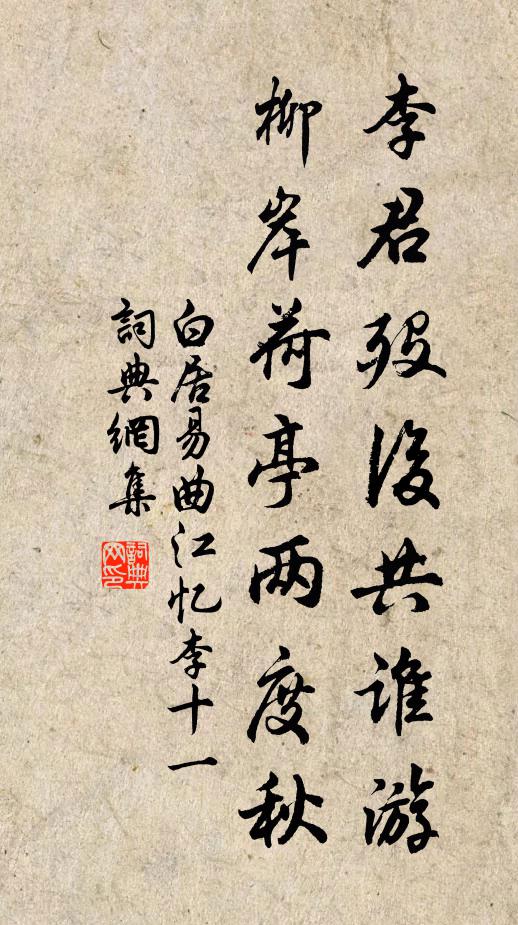 李君殁後共谁游
柳岸荷亭两度秋
白居易曲江忆李十一
詞典網集
詞典
网印